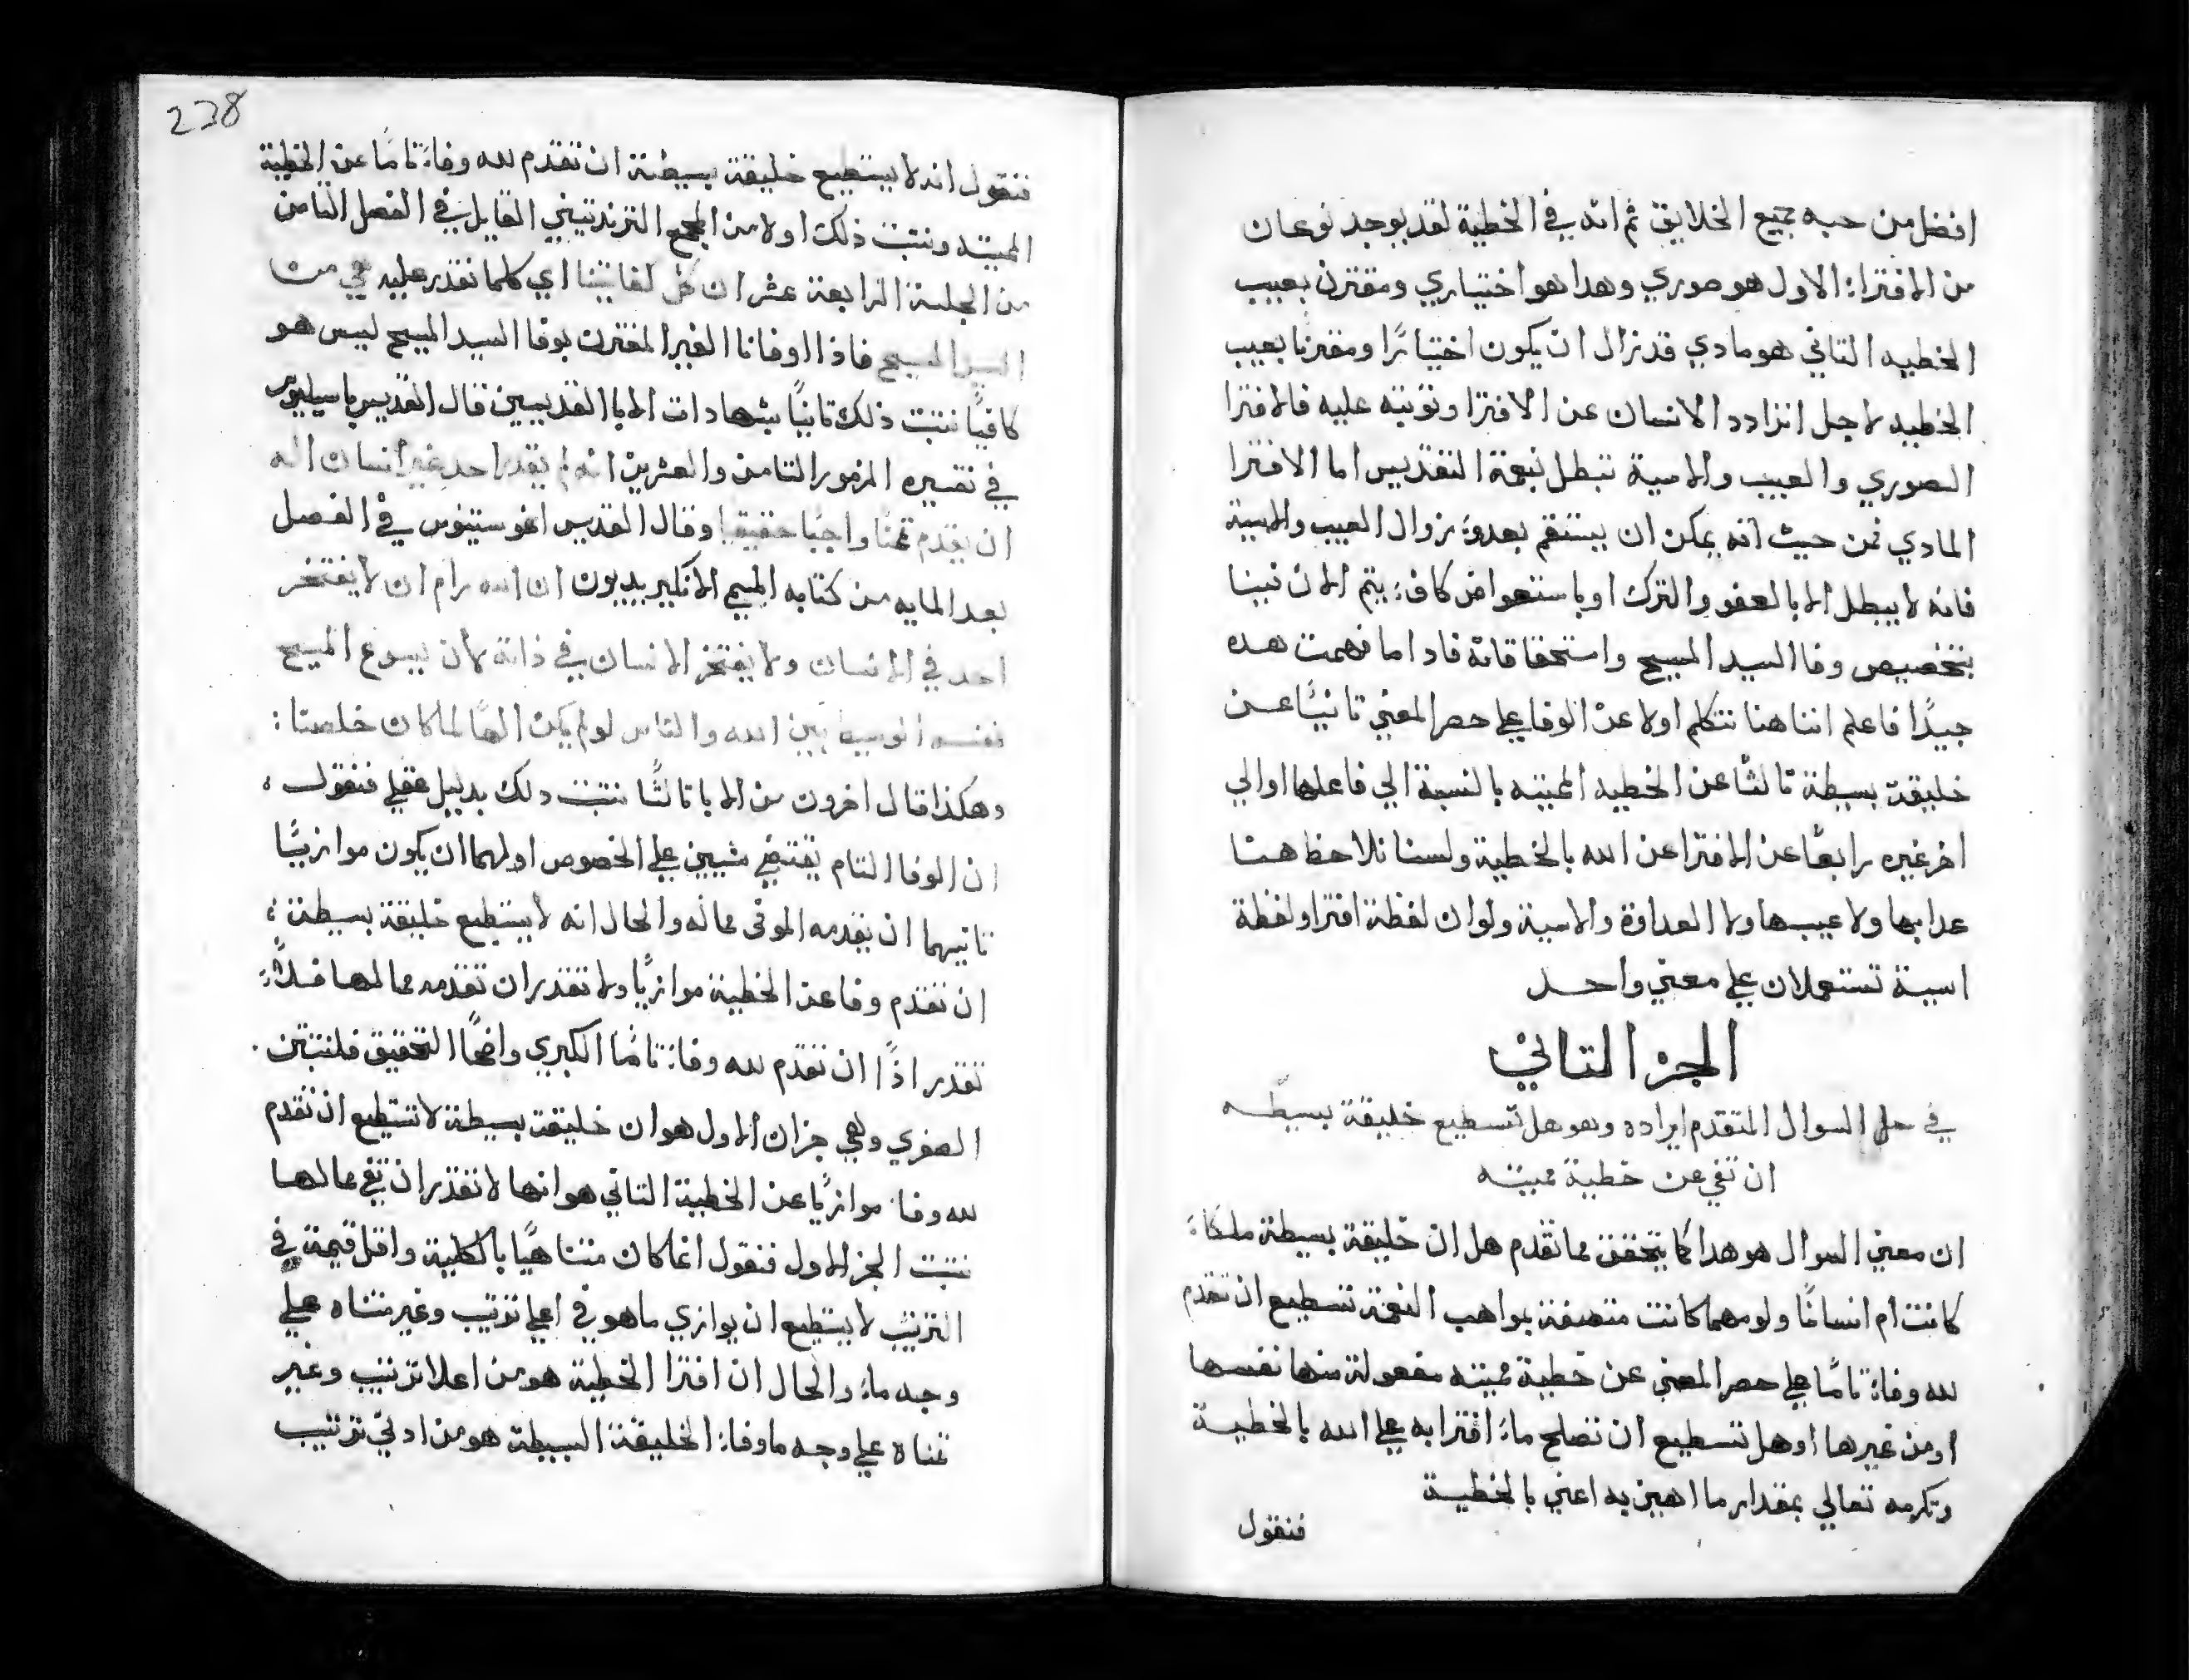 افضل من حبه جميع الخلايق ثم انه في الخطية لقد يوجد نوعان
من الافتراء الاول هو صوري وهدا هو اختياري ومقترن بعيب
الخطيه التاني هو مادي قد زال ان يكون اختيارًا ومقترنًا بعيب
الخطيه لاجل ارتداد الانسان عن الافترا وتوبته عليه فالافترا
الصوري والعيب والاسية تبطل بنعمة التقديس اما الافترا
المادي فمن حيث انه يمكن ان يستقم بعدوء زوال العيب والاسية
فانه لا يبطل الا بالعفو والترك او باستعواض كافٍ يتم الان فينا
بتخصيص وفا السيد المسيح واستحقاقاته فاد اما فهمت هده
جيدًا فاعلم اننا هنا نتكلم اولا عن الوفا علي حصر المعني تانيًا عن
خليقة بسيطة تالثًا عن الخطيه المميته بالنسبة الي فاعلها او الي
اخر غيره رابعًا عن الافترا عن الله بالخطية ولسنا نلاحظ هنا
عدابها ولا عيبها ولا العداوة والاسية ولو ان لفظة افترا ولفظة
اسية تستعملان علي معني واحد
الجز التاني
في حل السوال المتقدم ايراده وهو هل تسطيع خليقة بسيطه
ان تفي عن خطية مميته
ان معني السوال هو هدا كما يتحقق مما تقدم هل ان خليقة بسيطة ملكاً
كانت ام انسانًا ولو مهما كانت متصفة بمواهب النعمة تسطيع ان تقدم
لله وفاءً تامًا علي حصر المعني عن خطية مميته مفعولة منها نفسها
او من غيرها او هل تسطيع ان تصلح ماء افترا به علي الله بالخطية
وتكرمه تعالي بمقدار ما اهين به اعني بالخطية
فنقول
228
فنقول انه لا يستطيع خليقة بسيطة ان تقدم لله وفاءً تامًا عن الخطية
المميته ونتبت ذلك اولا من المجمع التريدنتيني القايل في الفصل التامن
من الجلسة الرابعة عشر ان كل كفايتنا اي كلما نقدر عليه هي من
السيد المسيح فاذا اوفانا الغير المقترن بوفا السيد المسيح ليس هو
كافيًا نتبت ذلك تانيًا بشهادات الابا القديسين قال القديس باسيليوس
في تفسيره المزمور التامن والعشرين انه لم يقدر احد غير انسان اله
ان يقدم ثمنًا واجبًا حقيقيا وقال القديس اغوستينوس في الفصل
بعد المايه من كتابه المسمي الانكيريديون ان الله رام ان لا يفتخر
احد في الانسان ولا يفتخر الانسان في ذاته لان يسوع المسيح
نفسه الوسيط بين الله والناس لو لم يكن الهًا لما كان خلصنا:
وهكذا قال اخرون من الابا تالثًا نتبت دلك بدليل عقلي فنقول
ان الوفا التام يقتضي شيين علي الخصوص اولهما ان يكون موازيًا
تانيهما ان يقدمه الموفى مما له والحال انه لا يستطيع خليقة بسيطة
ان تقدم وفا عن الخطية موازيًا ولا تقدر ان تقدمه مما لها فلا
تقدر اذًا ان تقدم لله وفاءً تامًا الكبري واضحًا التحقيق فلنتبتن
الصغري وهي جزان الاول هو ان خليقة بسيطة لا تستطيع ان تقدم
لله وفاء موازيًا عن الخطية التاني هو انها لا تقدر ان تفي مما لها
نتبت الجز الاول فنقول انما كان متناهيًا بالكلية واقل قيمة في
الترتيب لا يستطيع ان يوازي ما هو في اعلي ترتيب وغير متناه علي
وجه ماء والحال ان افترا الخطية هو من اعلا ترتيب وغير
تمناه علي وجه ما وفاء الخليقة البسيطة هو من ادني ترتيب